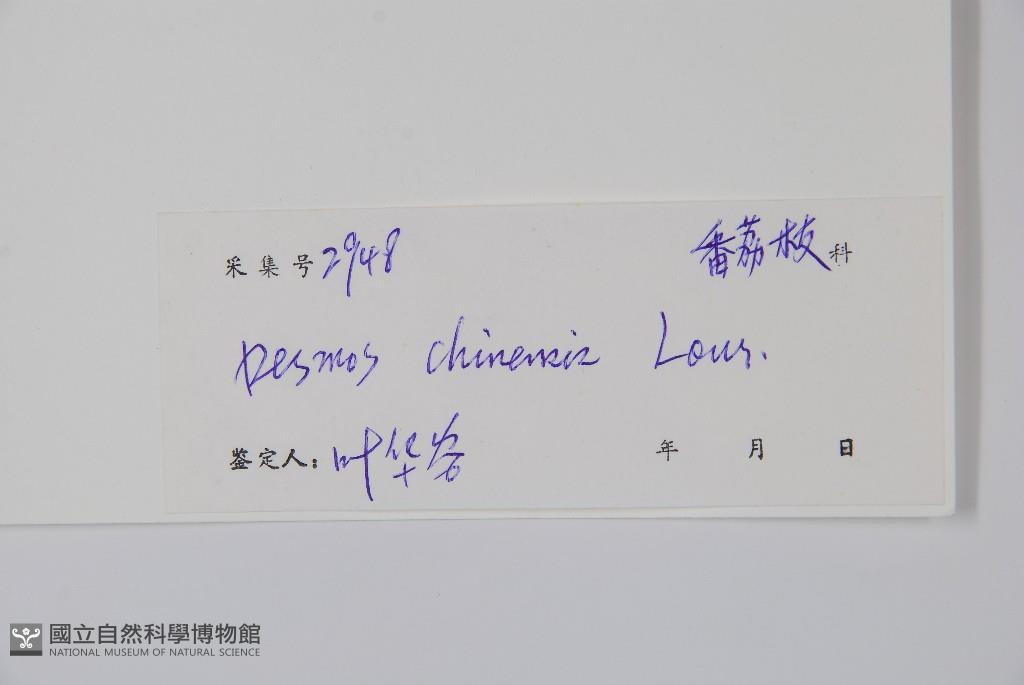 采集号 2948 番荔枝科
Desmos chinensis Lour.
鉴定人: 叶华谷
年 月 日
國立自然科學博物館
NATIONAL MUSEUM OF NATURAL SCIENCE